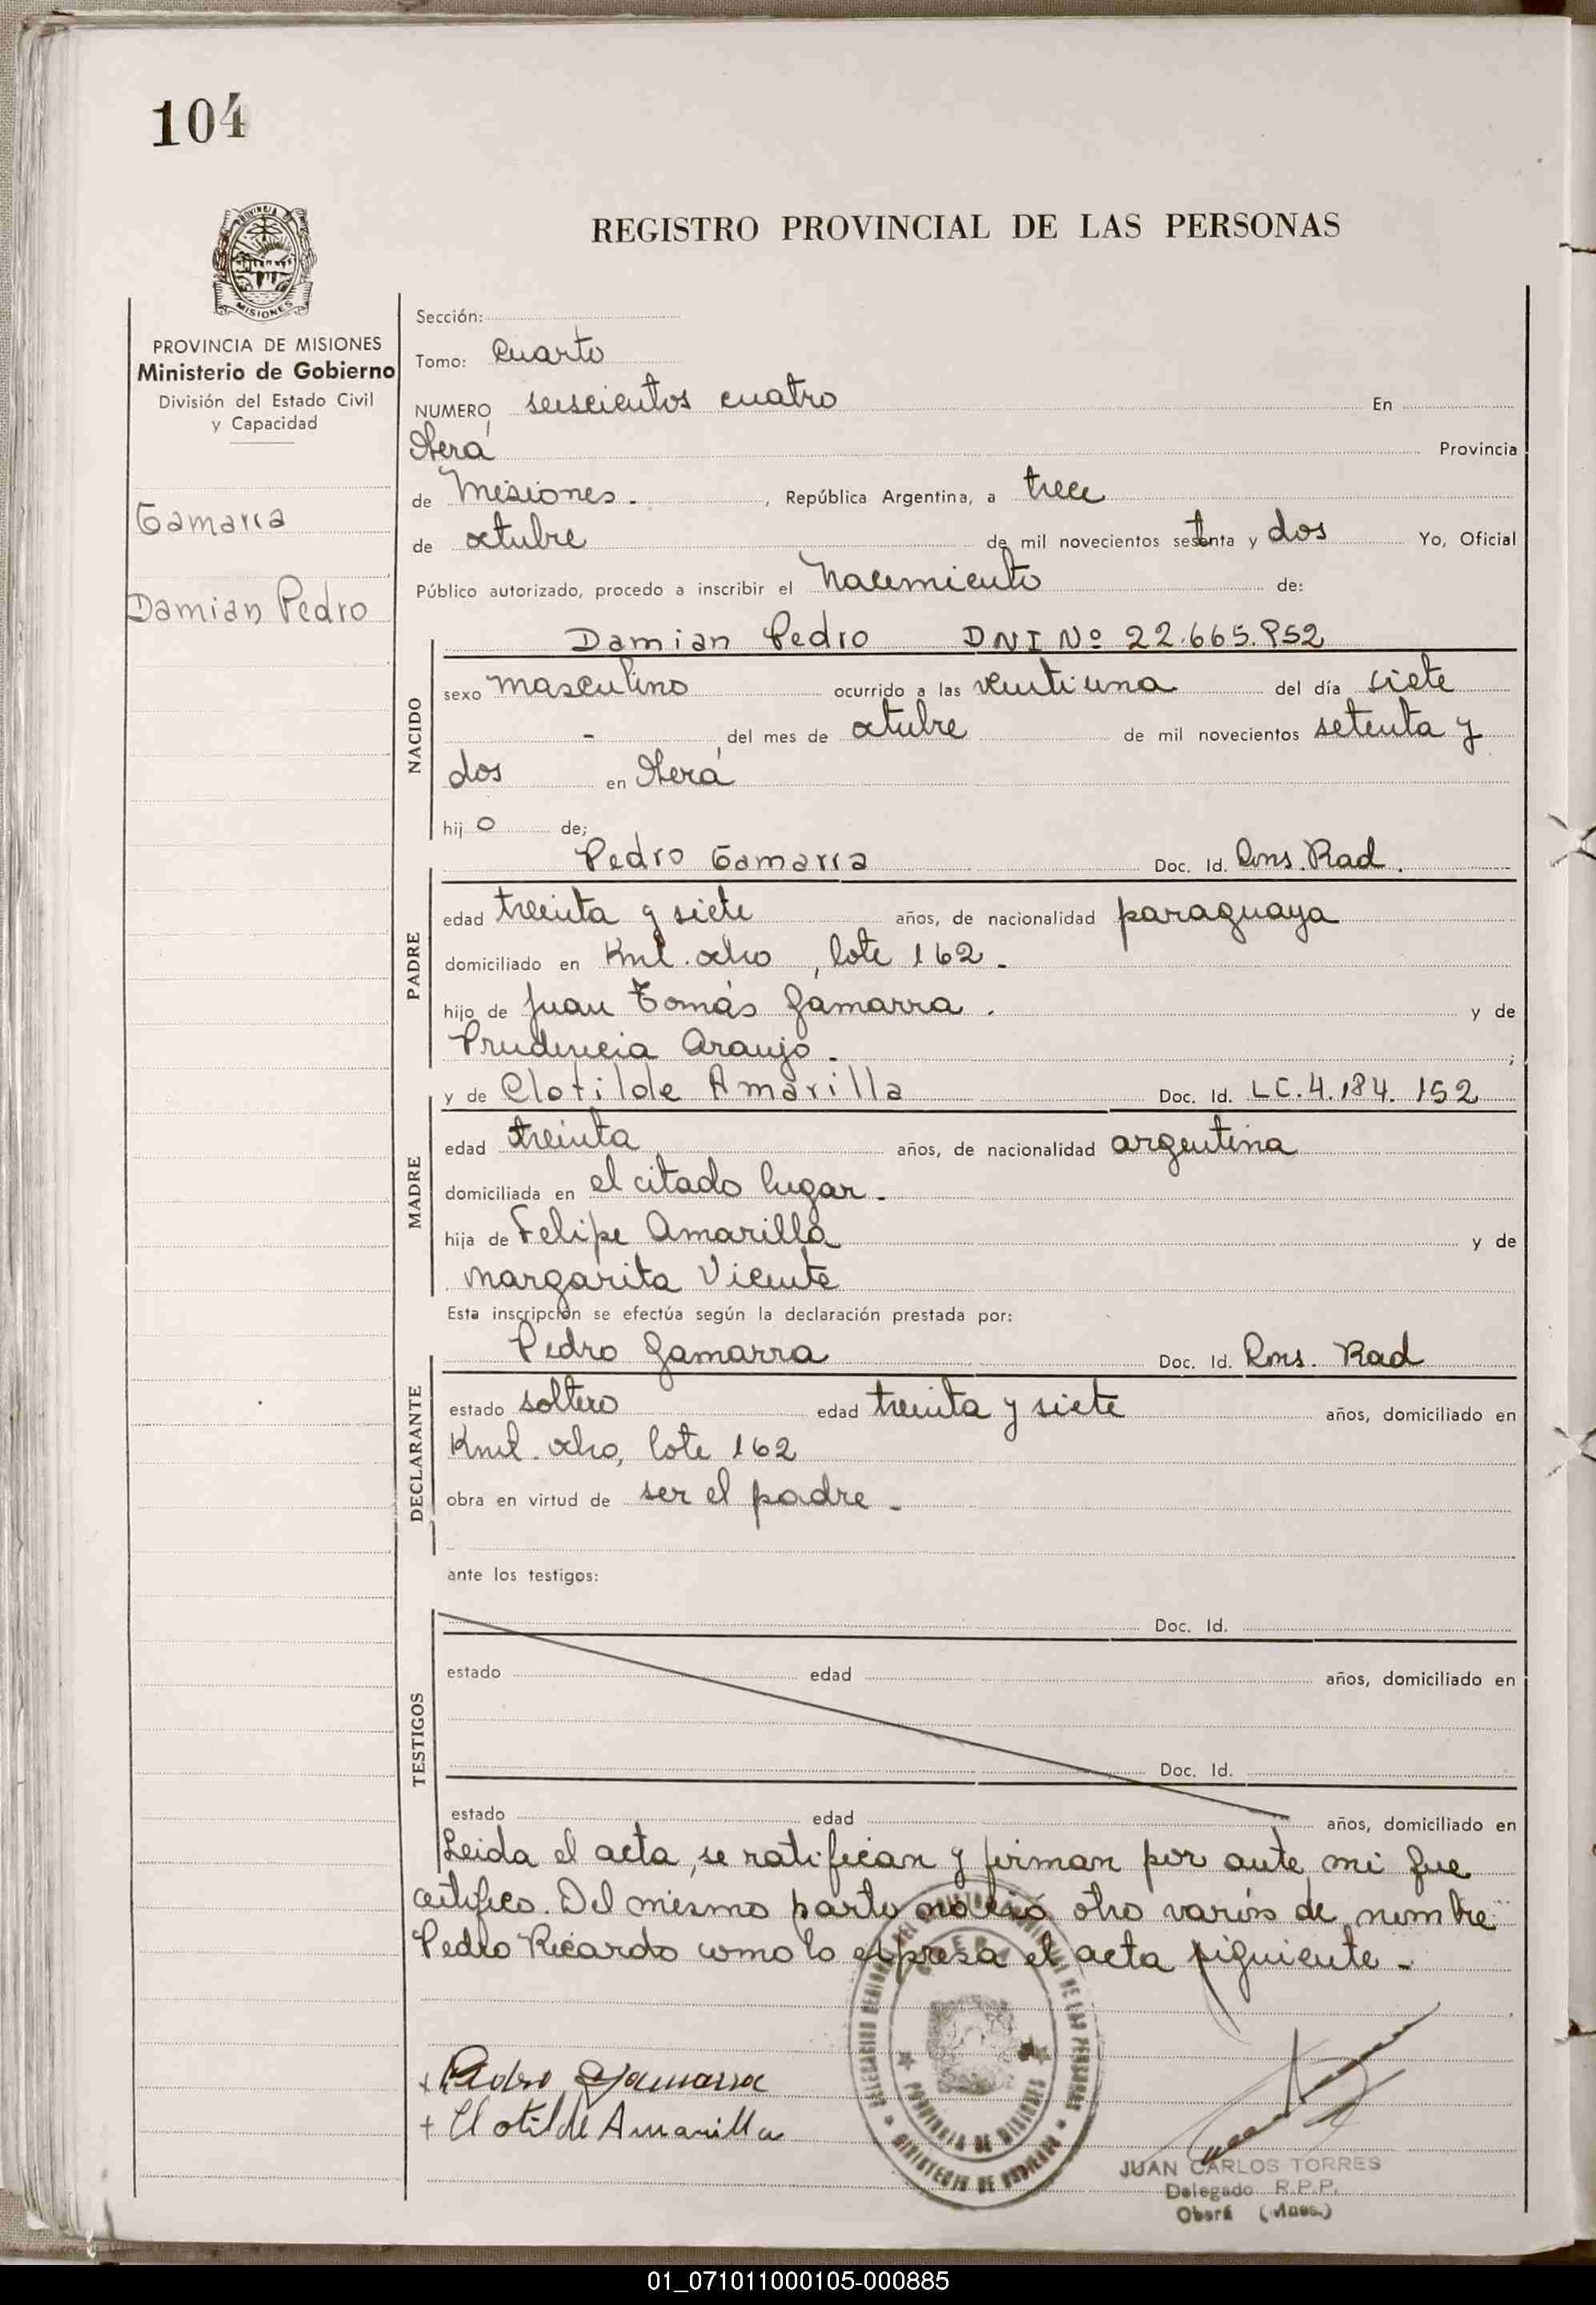 104
PROVINCIA DE MISIONES
REGISTRO PROVINCIAL DE LAS PERSONAS
PROVINCIA DE MISIONES
Ministerio de Gobierno
División del Estado Civil
y Capacidad
Gamarra
Damian Pedro
Sección:
Tomo: Cuarto
NUMERO seiscientos cuatro En
Oberá Provincia
de Misiones - , República Argentina, a trece
de octubre de mil novecientos setenta y dos Yo, Oficial
Público autorizado, procedo a inscribir el Nacimiento de:
Damian Pedro DNI Nº 22.665.852
NACIDO
sexo masculino ocurrido a las veintiuna del día siete
- del mes de octubre de mil novecientos setenta y
dos en Oberá
hij o de;
Pedro Gamarra Doc. Id. Cons. Rad.
PADRE
edad treinta y siete años, de nacionalidad paraguaya
domiciliado en Kml. ocho, lote 162 -
hijo de Juan Tomás Gamarra . y de
Prudencia Araujo - ;
y de Clotilde Amarilla Doc. Id. LC. 4.184.152
MADRE
edad treinta años, de nacionalidad argentina
domiciliada en el citado lugar -
hija de Felipe Amarilla y de
Margarita Vicente
Esta inscripción se efectúa según la declaración prestada por:
Pedro Gamarra Doc. Id. Cons. Rad
DECLARANTE
estado soltero edad treinta y siete años, domiciliado en
Kml. ocho, lote 162
obra en virtud de ser el padre -
ante los testigos:
TESTIGOS
Doc. Id.
estado edad años, domiciliado en
Doc. Id.
estado edad años, domiciliado en
Leida el acta, se ratifican y firman por ante mi que
certifico. Del mismo parto nació otro varón de nombre
Pedro Ricardo como lo expresa el acta siguiente -
+ Pedro Gamarra
+ Clotilde Amarilla
PROVINCIA DE MISIONES
MINISTERIO DE GOBIERNO
JUAN CARLOS TORRES
Delegado R.P.P.
Oberá (Mnes.)
01_071011000105-000885